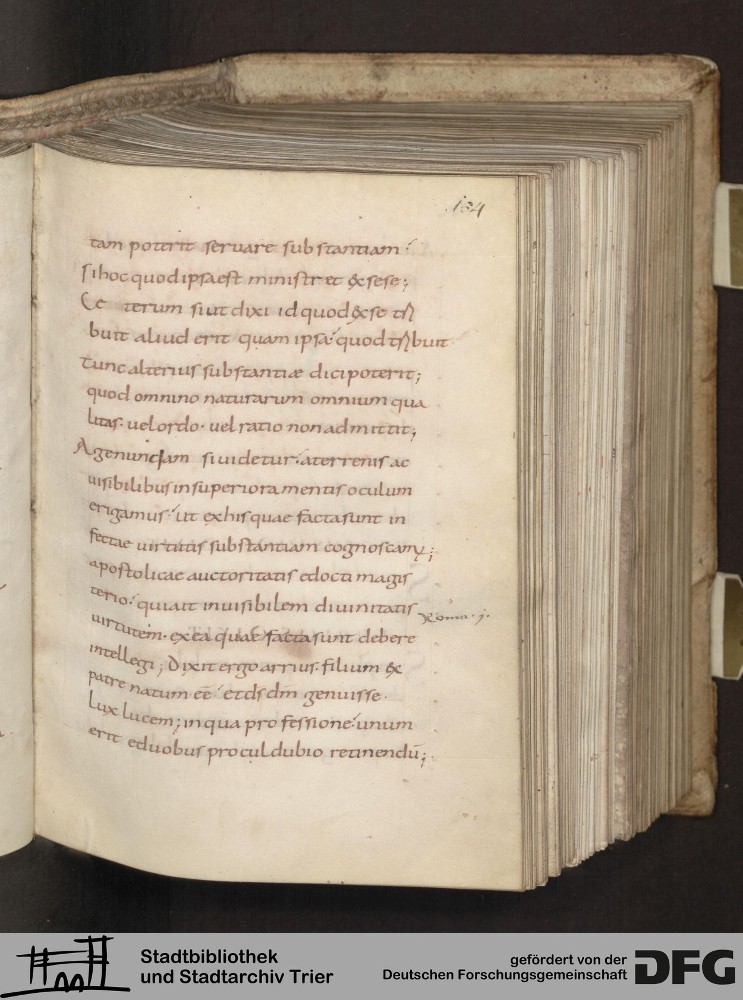 134
tam poterit servare substantiam
si hoc quod ipsa est ministret & sese;
Ce terum si ut dixi id quod & se
buit aliud erit quam ipsa quod buit
Tunc alterius substantiæ dici poterit;
quod omnino naturarum omnium qua
litas· uel ordo· uel ratio non admittit;
Age nunc iam si uidetur· a terrenis ac
uisibilibus in superiora mentis oculum
erigamus· ut ex his quae facta sunt in
fectae uirtutis substantiam
apostolicae auctoritatis edocti magis
terio· qui ait inuisibilem diuinitatis
Roma· j·
uirtutem· ex ea quae facta sunt debere
intellegi; Dixit ergo arrius· filium ex
patre natum eē· et ds dm genuisse·
Lux lucem; in qua professione· unum
erit e duobus procul dubio retinendū;
Stadtbibliothek
und Stadtarchiv Trier
gefördert von der
Deutschen Forschungsgemeinschaft
DFG